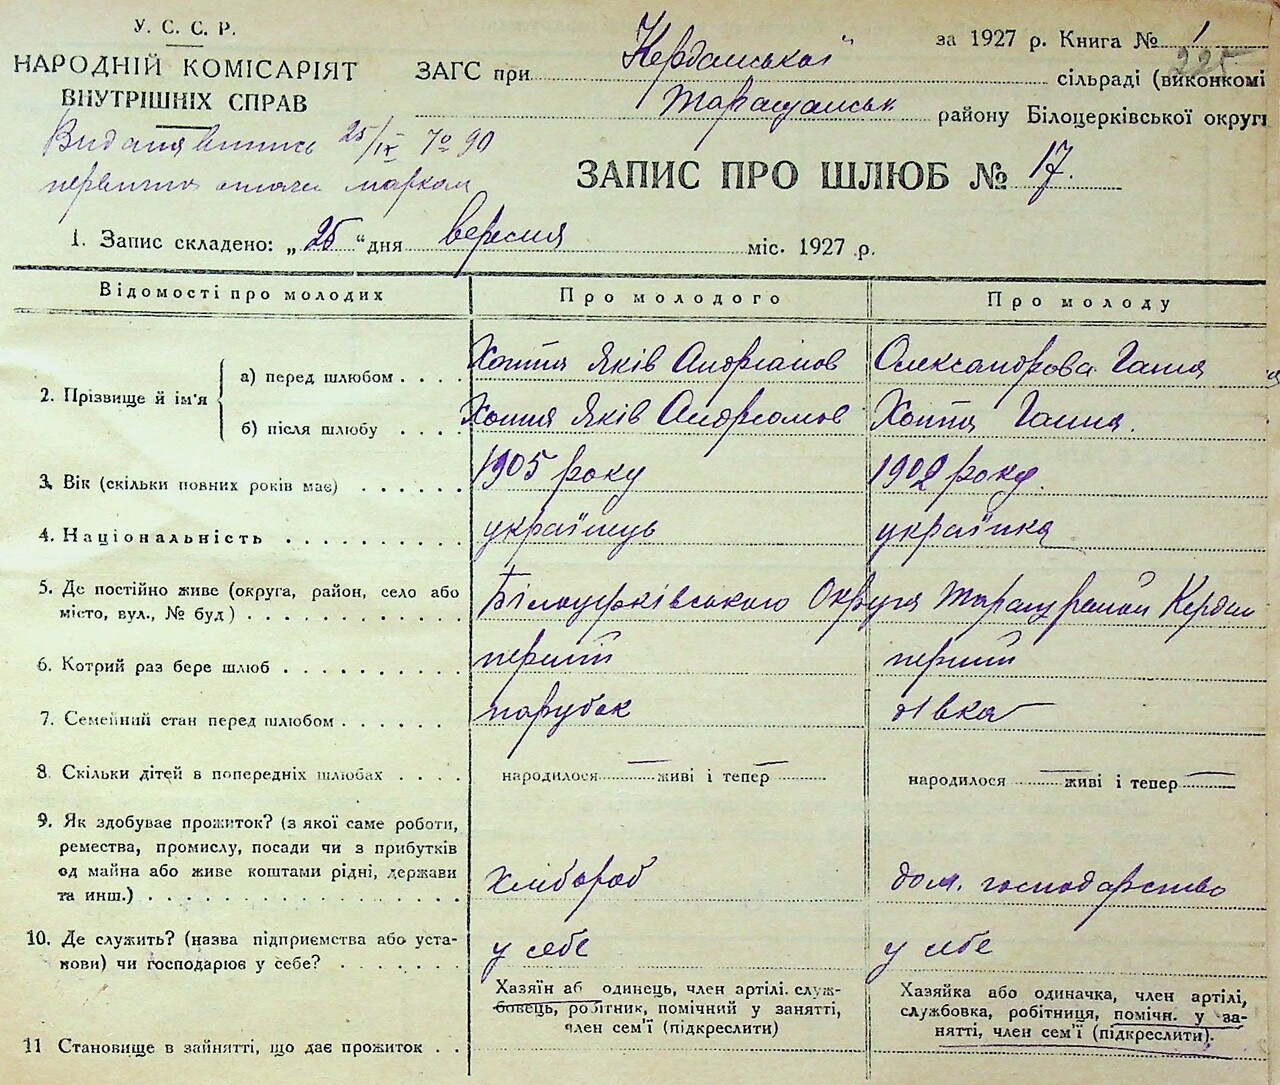 У. С. С. Р.
НАРОДНІЙ КОМІСАРІЯТ
ВНУТРІШНІХ СПРАВ
за 1927 р. Книга № 1
225
ЗАГС при Керданської сільраді (виконкомі
Таращанськ району Білоцерківської округи
Видана випись 25/IX 70 90
марками
ЗАПИС ПРО ШЛЮБ № 17.
1. Запис складено: „25“ дня вересня міс. 1927 р.
Відомості про молодих Про молодого Про молоду
2. Прізвище й ім'я
а) перед шлюбом . . . . Хоптя Яків Андріанов Олександрова Ганя
б) після шлюбу . . . . Хоптя Яків Андріанов Хоптя Ганна.
3. Вік (скільки повних років має) . . . . . . 1905 року 1902 року.
4. Національність . . . . . . . . . . українець українка
5. Де постійно живе (округа, район, село або
місто, вул., № буд) . . . . . . . . . . . . Білоцерківського Округа Таращ район Кердан
6. Котрий раз бере шлюб . . . . . . . . . . перший перший
7. Семейний стан перед шлюбом . . . . . . . парубок дівка
8. Скільки дітей в попередніх шлюбах . . . . народилося — живі і тепер — народилося — живі і тепер —
9. Як здобуває прожиток? (з якої саме роботи,
ремества, промислу, посади чи з прибутків
од майна або живе коштами рідні, держави
та инш.) . . . . . . . . . . . . . . . . . хлібороб дом. господарство
10. Де служить? (назва підприємства або уста-
нови) чи господарює у себе? . . . . . . . у себе у себе
11 Становище в зайнятті, що дає прожиток . .
Хазяїн або одинець, член артілі. служ-
бовець, робітник, помічний у занятті,
член сем'ї (підкреслити)
Хазяйка або одиначка, член артілі,
службовка, робітниця, помічн. у за-
нятті, член сем'ї (підкреслити).